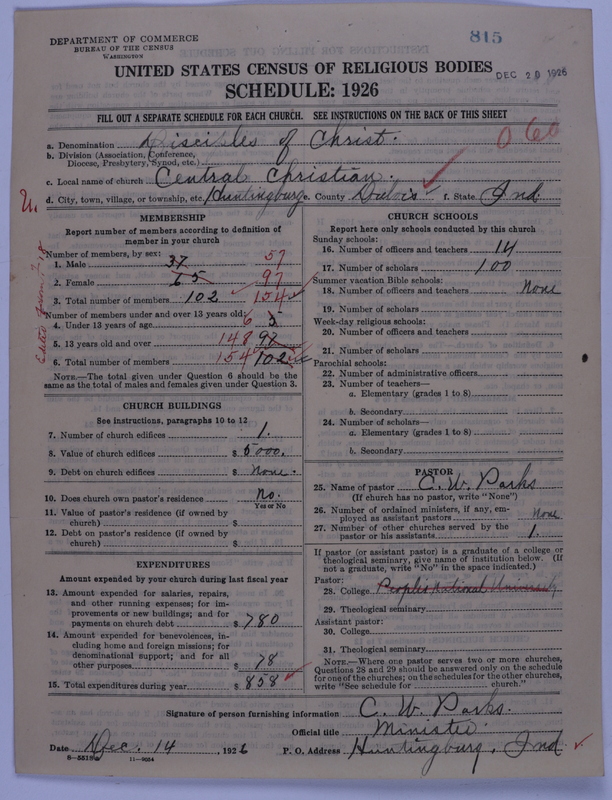 815
DEPARTMENT OF COMMERCE
BUREAU OF THE CENSUS
WASHINGTON
UNITED STATES CENSUS OF RELIGIOUS BODIES
DEC 20 1926
SCHEDULE: 1926
FILL OUT A SEPARATE SCHEDULE FOR EACH CHURCH. SEE INSTRUCTIONS ON THE BACK OF THIS SHEET
a. Denomination Disciples of Christ. 060
b. Division (Association, Conference, Diocese, Presbytery, Synod, etc.)
c. Local name of church Central Christian.
d. City, town, village, or township, etc. Huntingburg e. County Dubois f. State Ind
MEMBERSHIP
Report number of members according to definition of
member in your church
Number of members, by sex:
1. Male 37 57
2. Female 65 97
3. Total number of members 102 154
Number of members under and over 13 years old:
4. Under 13 years of age 6 5
5. 13 years old and over 148 97
6. Total number of members 154 102
NOTE.—The total given under Question 6 should be the
same as the total of males and females given under Question 3.
CHURCH BUILDINGS
See instructions, paragraphs 10 to 12
7. Number of church edifices 1.
8. Value of church edifices $ 5000.
9. Debt on church edifices $ None.
10. Does church own pastor's residence No.
Yes or No
11. Value of pastor's residence (if owned by
church) $
12. Debt on pastor's residence (if owned by
church) $
EXPENDITURES
Amount expended by your church during last fiscal year
13. Amount expended for salaries, repairs,
and other running expenses; for im-
provements or new buildings; and for
payments on church debt $ 780
14. Amount expended for benevolences, in-
cluding home and foreign missions; for
denominational support; and for all
other purposes $ 78
15. Total expenditures during year $ 858
CHURCH SCHOOLS
Report here only schools conducted by this church
Sunday schools:
16. Number of officers and teachers 14
17. Number of scholars 100
Summer vacation Bible schools:
18. Number of officers and teachers None
19. Number of scholars
Week-day religious schools:
20. Number of officers and teachers
21. Number of scholars
Parochial schools:
22. Number of administrative officers
23. Number of teachers—
a. Elementary (grades 1 to 8)
b. Secondary
24. Number of scholars—
a. Elementary (grades 1 to 8)
b. Secondary
PASTOR
25. Name of pastor C. W. Parks
(If church has no pastor, write "None")
26. Number of ordained ministers, if any, em-
ployed as assistant pastors None
27. Number of other churches served by the
pastor or his assistants 1.
If pastor (or assistant pastor) is a graduate of a college or
theological seminary, give name of institution below. (If
not a graduate, write "No" in the space indicated.)
Pastor:
28. College Peoples National University
29. Theological seminary
Assistant pastor:
30. College
31. Theological seminary
NOTE.—Where one pastor serves two or more churches,
Questions 28 and 29 should be answered only on the schedule
for one of the churches; on the schedules for the other churches,
write "See schedule for church."
Signature of person furnishing information C. W. Parks.
Official title Minister.
Date Dec. 14, 1926 P. O. Address Huntingburg, Ind.
11—9034